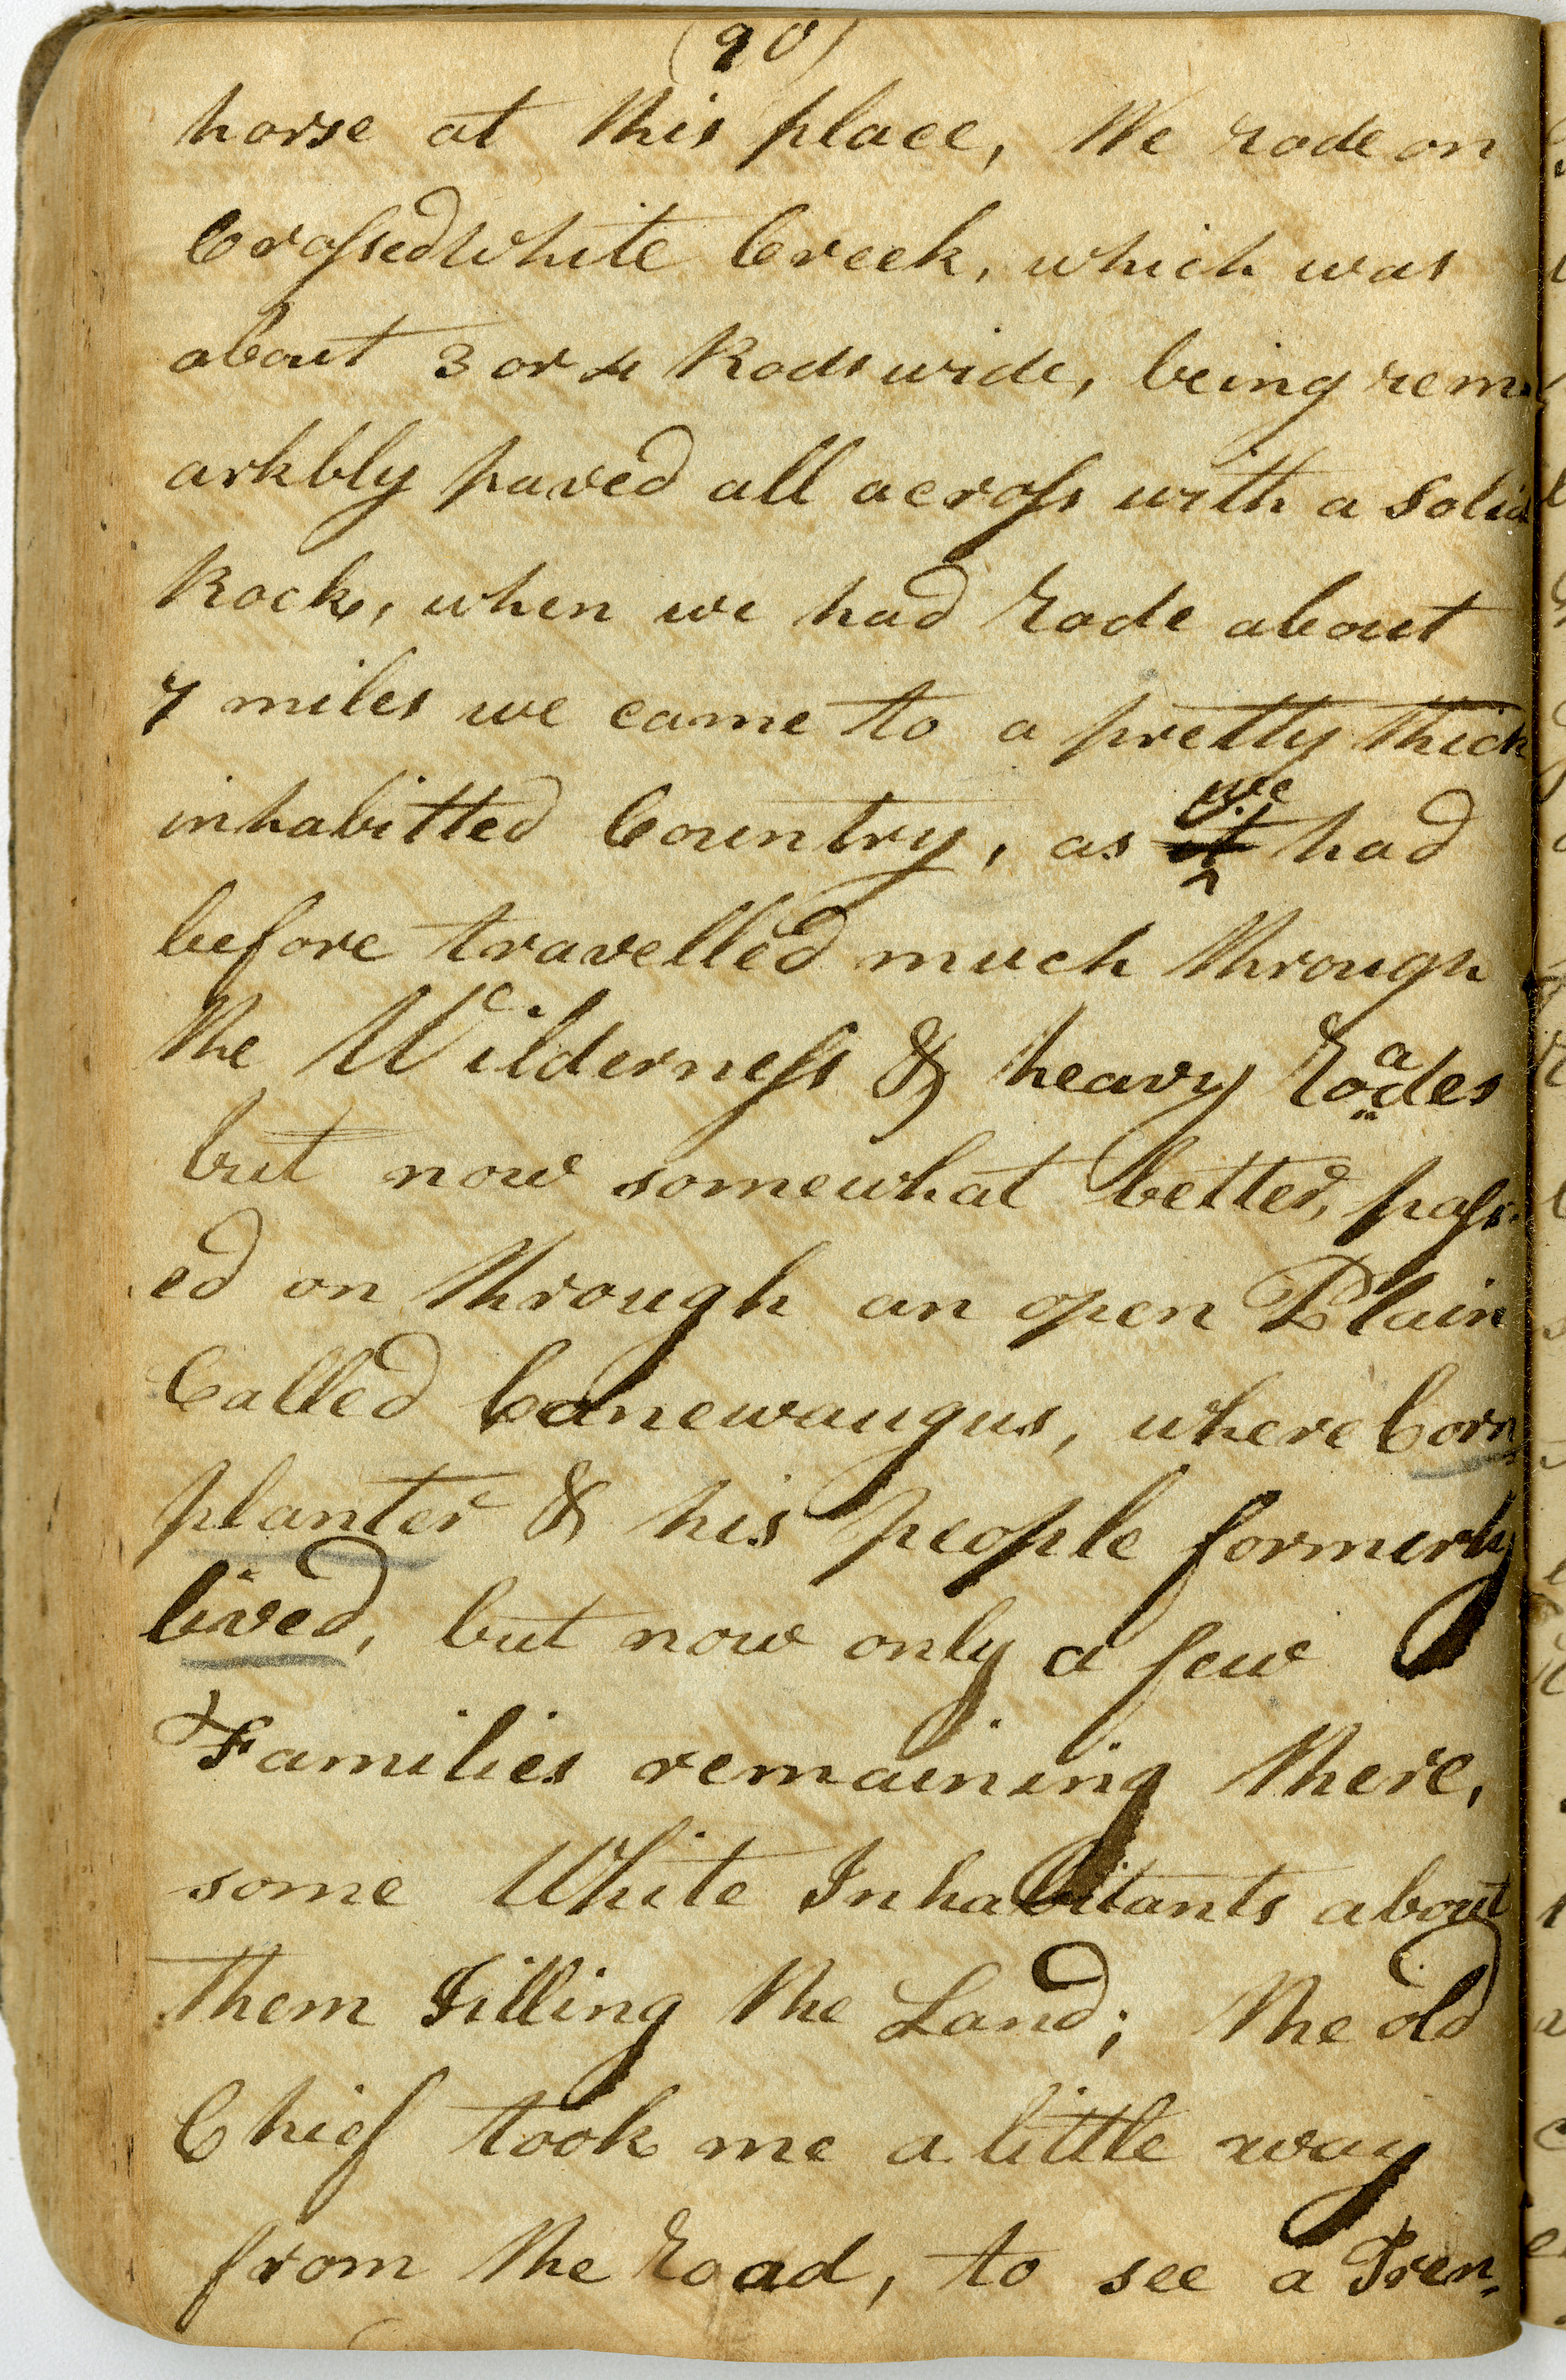 (90)
horse at this place, We rode on
Crossed White Creek, which was
about 3 or 4 Rods wide, being rem-
arkbly paved all across with a solid
Rock, when we had rode about
7 miles we came to a pretty thick
inhabitted Country, as we had
before travelled much through
the Wilderness & heavy roades
but now somewhat better, pass-
ed on through an open Plain
Called Canewaugus, where Corn
planter & his people formerly
lived, but now only a few
Families remaining there,
some White Inhabitants about
them Tilling the Land; the old
Chief took me a little way
from the road, to see a Tren-